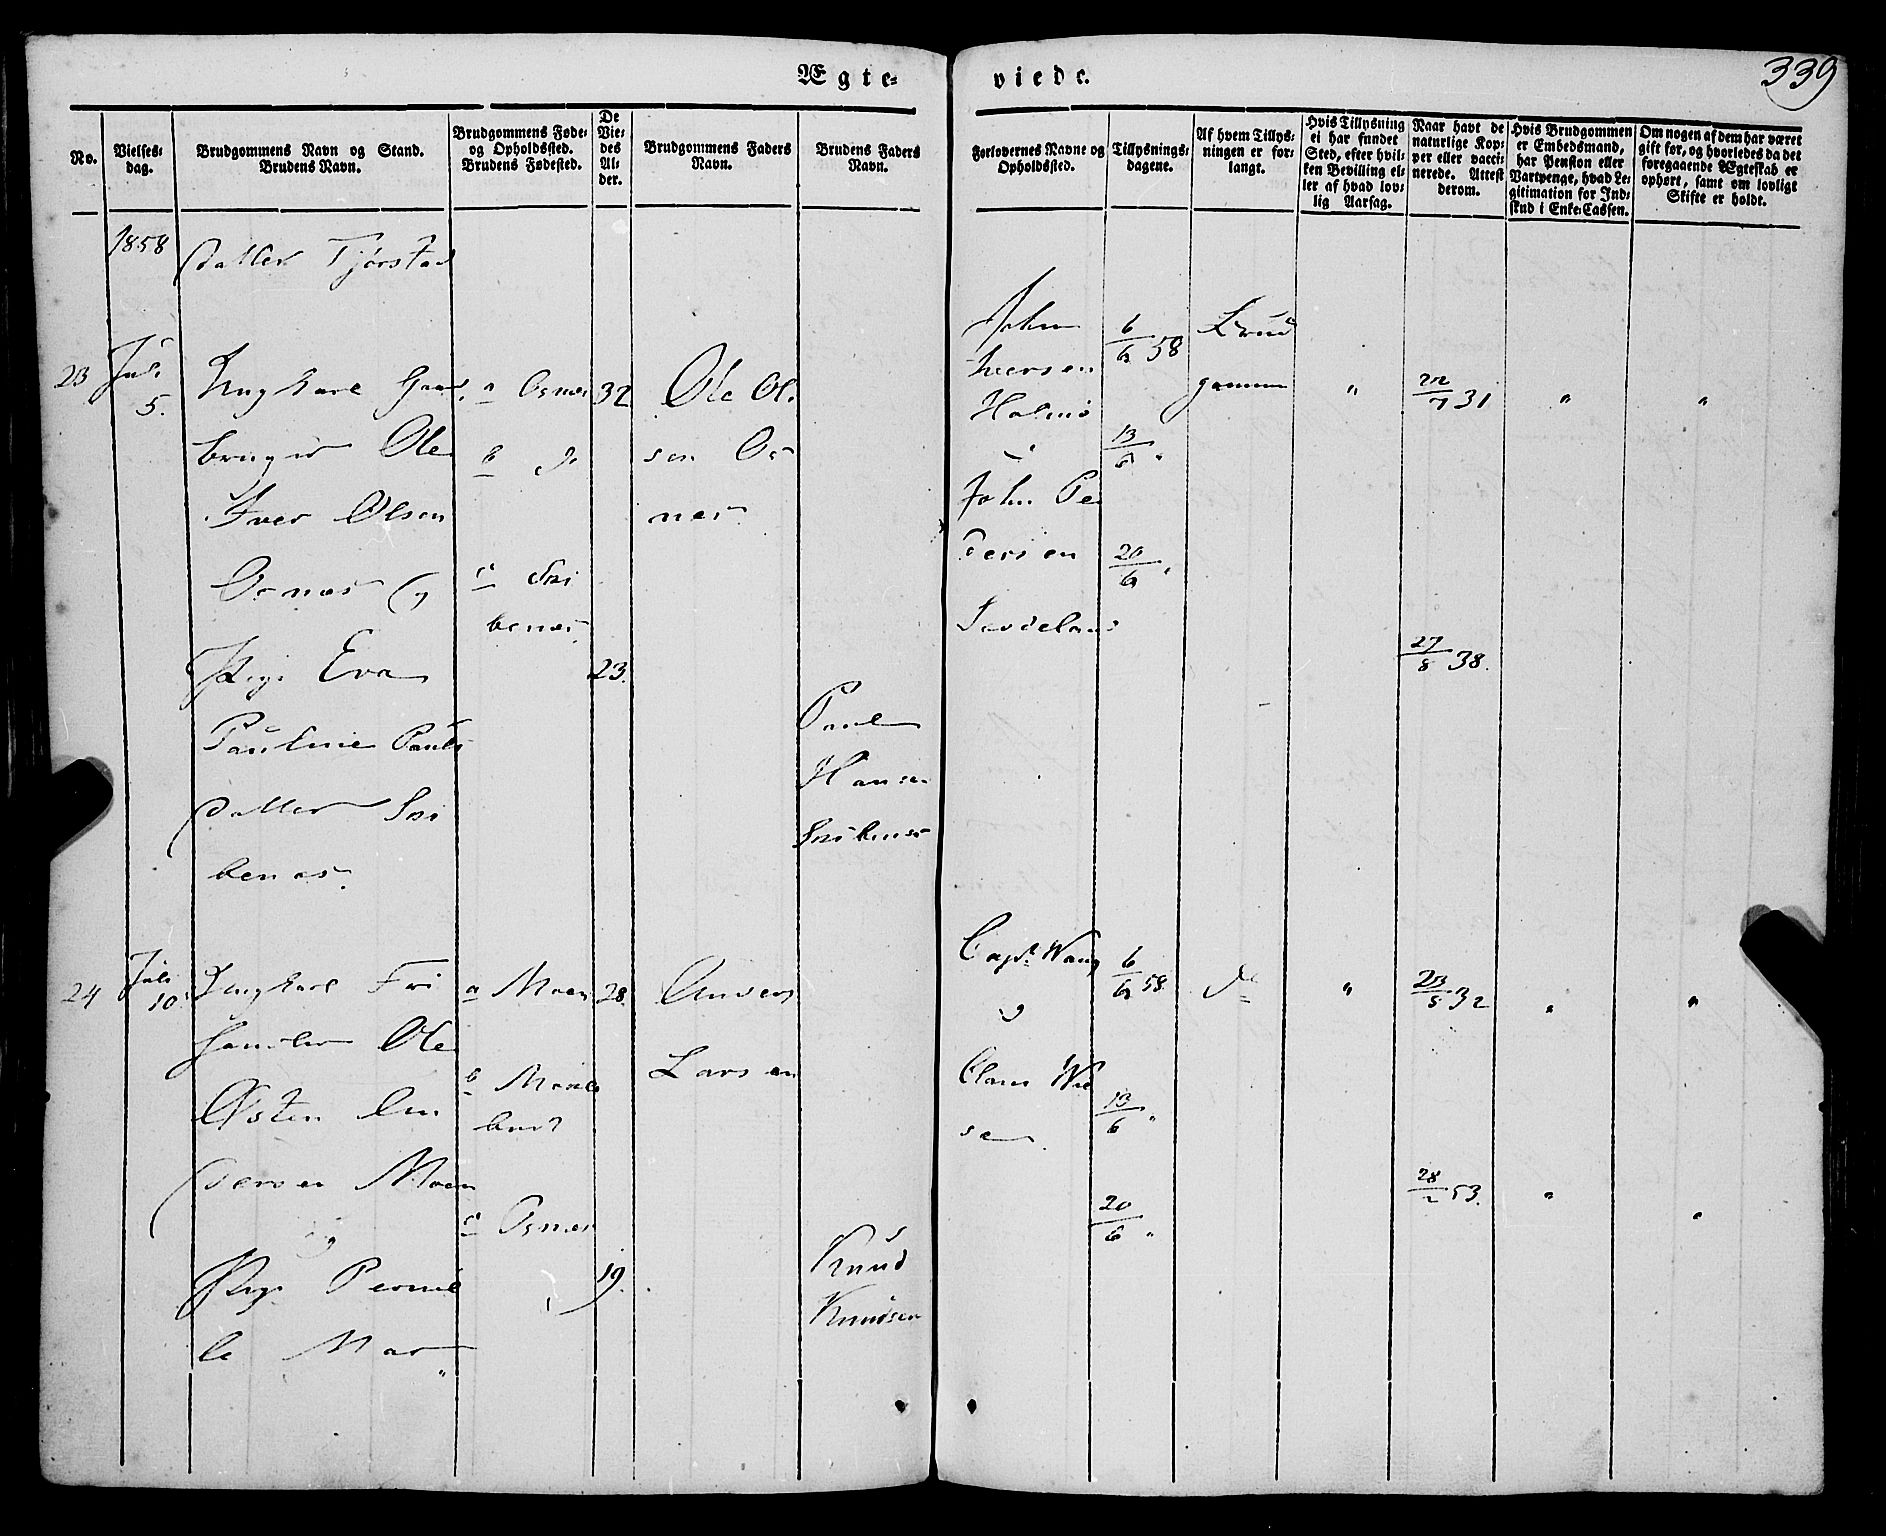 Ægte-
viede.
339
No.
Vielses-
dag.
Brudgommens Navn og Stand.
Brudens Navn.
Brudgommens Føde-
og Opholdssted.
Brudens Fødested.
De
Vie-
des
Al-
der.
Brudgommens Faders
Navn.
Brudens Faders
Navn.
Forlovernes Navne og
Opholdssted.
Tillysnings-
dagene.
Af hvem Tillys-
ningen er for-
langt.
Hvis Tillysning
ei har fundet
Sted, efter hvil-
ken Bevilling el-
ler af hvad lov-
lig Aarsag.
Naar havt de
naturlige Kop-
per eller vacci-
nerede. Attest
derom.
Hvis Brudgommen
er Embedsmand,
har Pension eller
Vartpenge, hvad Le-
gitimation for Ind-
skud i Enke-Cassen.
Om nogen af dem har været
gift for, og hvorledes da det
foregaaende Ægteskab er
ophørt, samt om lovligt
Skifte er holdt.
1858
datter Tjørstad
23
Juli
5.
Ungkarl Gaard
bruger Ole
Iver Olsen
Osnes og
Pige Eva
Pauline Pauls
datter
benes.
a Osnes
b do
c
benes
32
23.
Ole Ol
sen Os
nes
Paul
Hansen
John
Iversen
Holms
John Pe
dersen
6/6 58
13/6 "
20/6 "
Brud
gommen
"
22/7 31
27/8 38.
"
"
24
Juli
10.
Ungkarl Fri
handler Ole
Østen An
dersen Moen
og
Pige Pernil
le Mar
"
a Moen
b
c Osnes
28.
19.
Anders
Larsen
Knud
Knudsen
Capt. Wang
og
Claus Wie
se
6/6 58.
13/6 "
20/6 "
do
"
23/8 32
28/2 53.
"
"
"
"